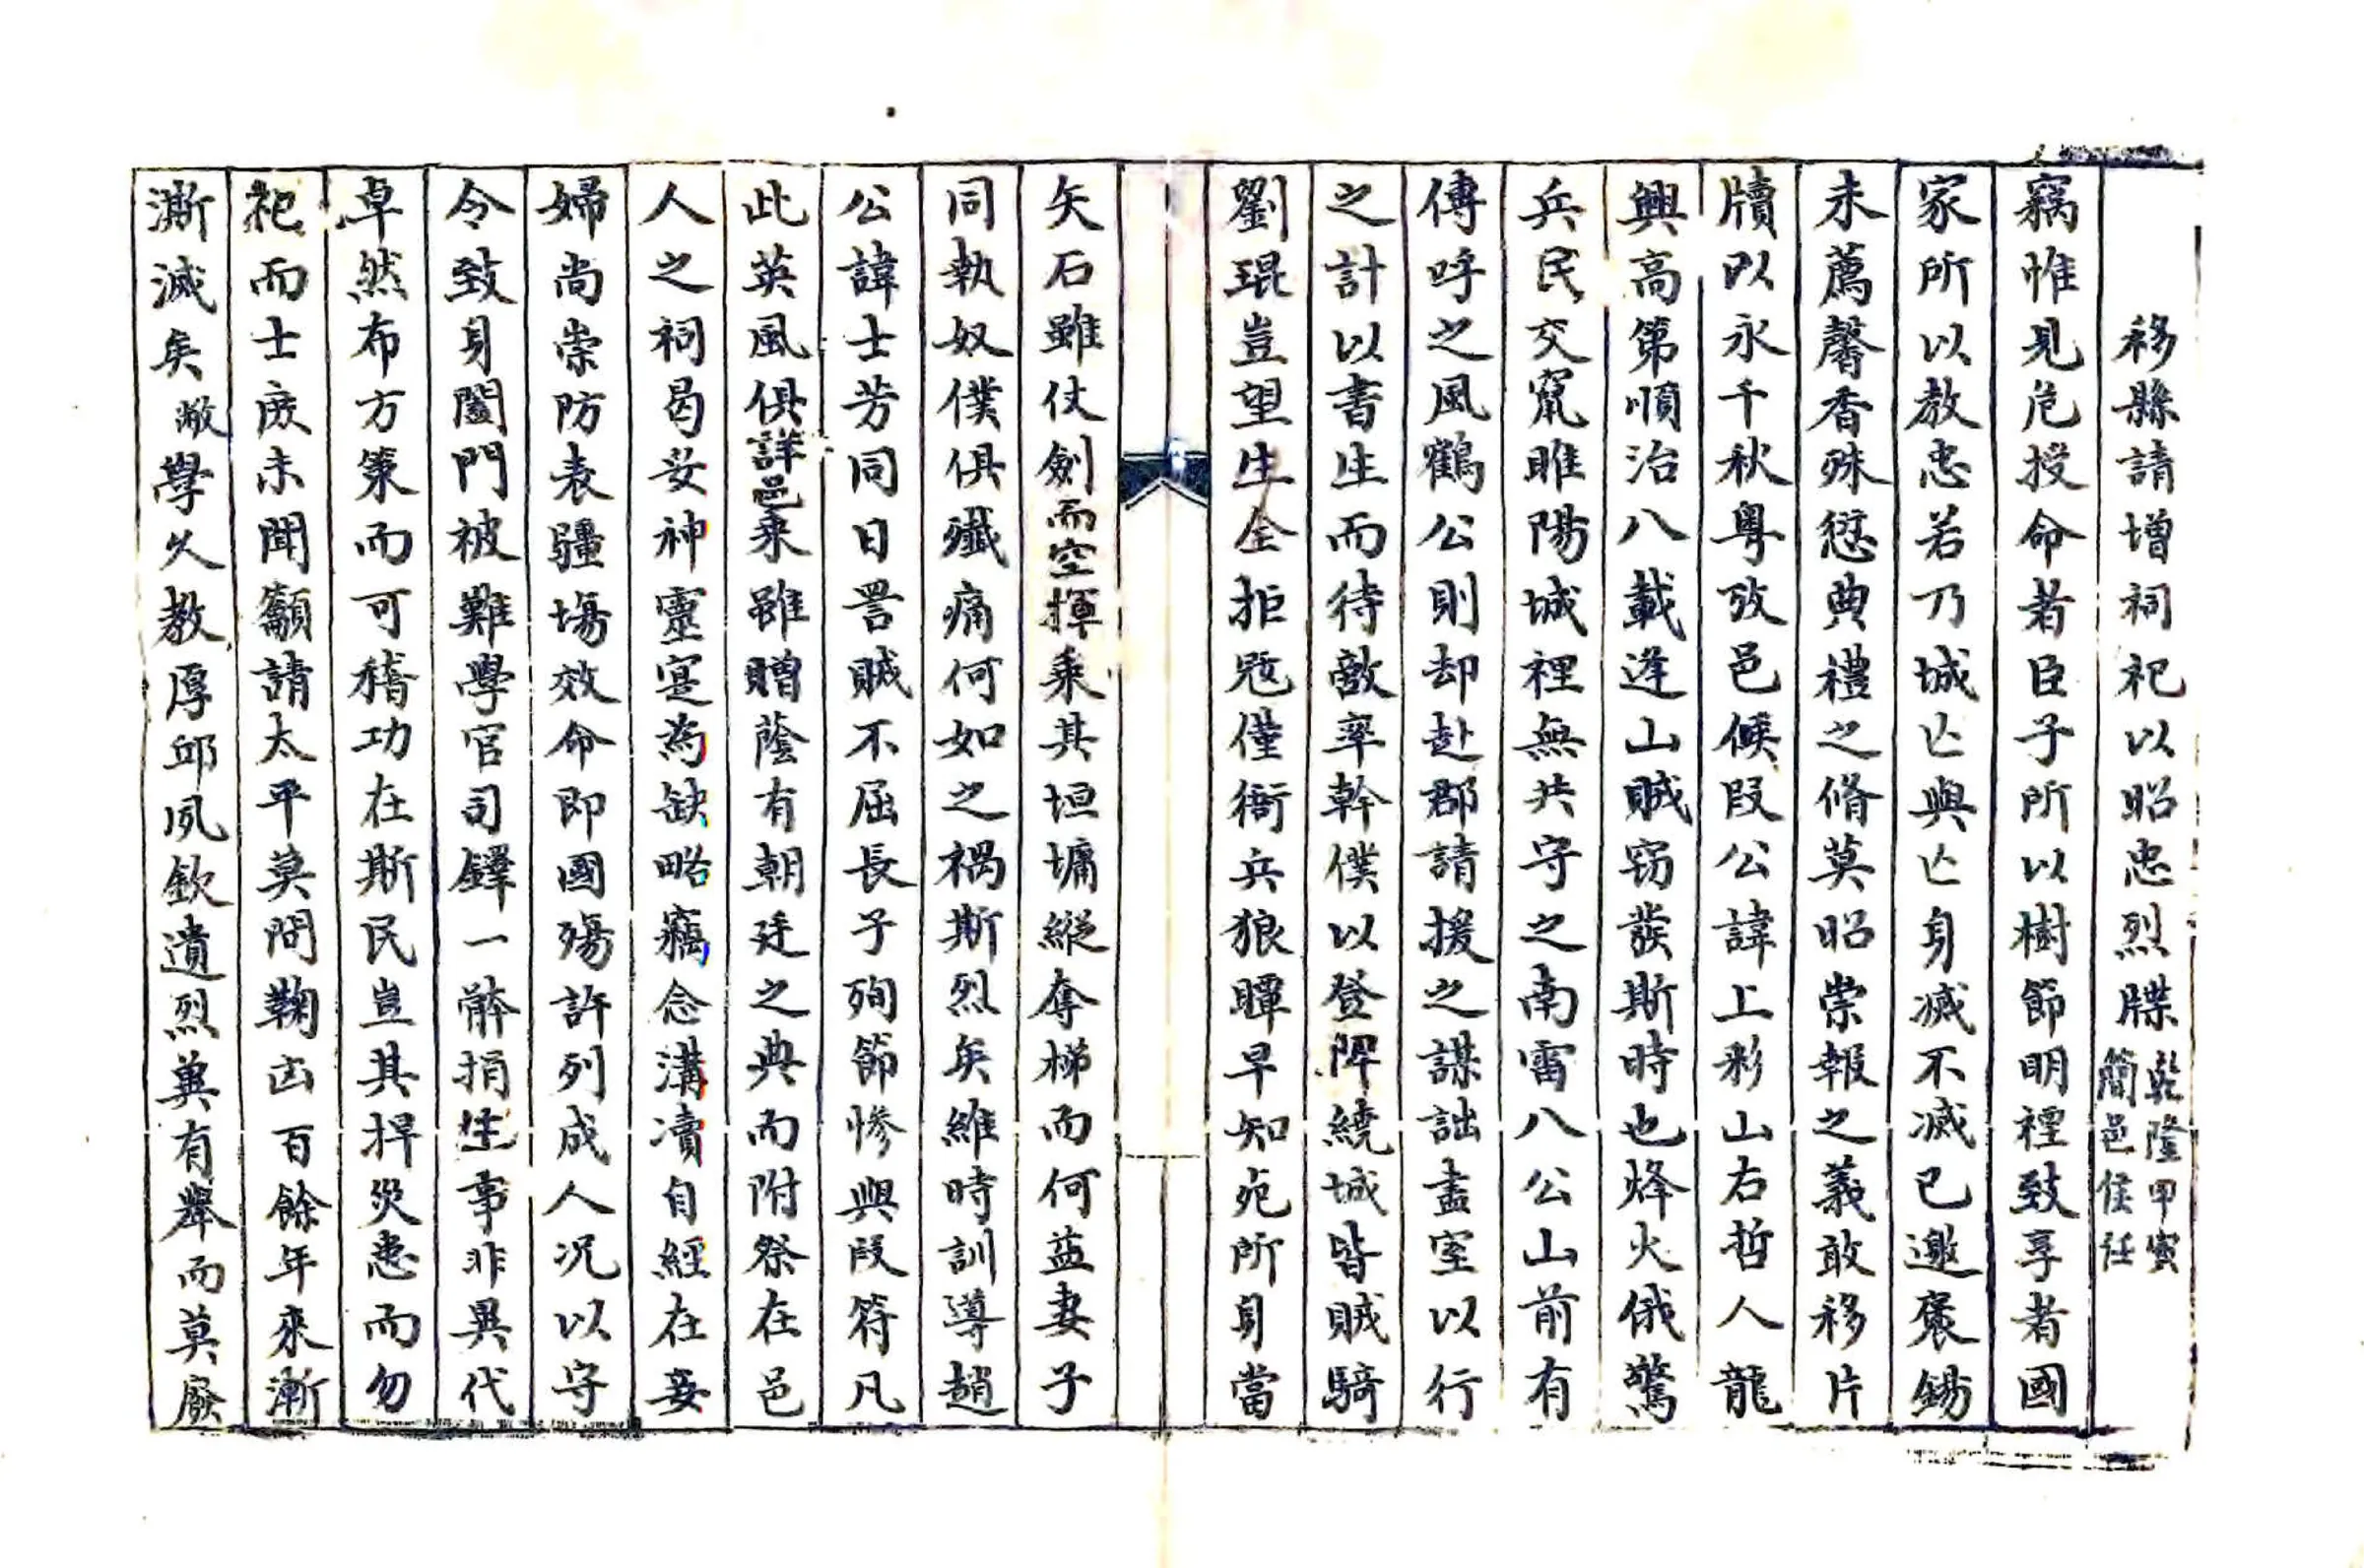 移縣請增祠祀以昭忠烈牒乾隆甲寅簡邑侯任
竊惟見危授命者臣子所以樹節明禋致享者國
家所以教忠若乃城亡與亡身滅不滅已邀褒錫
未薦馨香殊愆典禮之脩莫昭崇報之義敢移片
牘以永千秋粤攷邑候段公諱上彩山右哲人龍
興高第順治八載逢山賊窃發斯時也烽火俄驚
兵民交竄睢陽城裡無共守之南雷八公山前有
傳呼之風鶴公則却赴郡請援之謀詘盡室以行
之計以書生而待敵率幹僕以登陴繞城皆賊騎
劉琨豈望生全拒寇僅衙兵狼瞫早知死所身當
矢石雖仗劍而空揮乘其垣墉縱奪梯而何益妻子
同執奴僕俱殲痛何如之禍斯烈矣維時訓導趙
公諱士芳同日詈賊不屈長子殉節慘與段符凡
此英風俱詳邑乘雖贈蔭有朝廷之典而附祭在邑
人之祠曷妥神靈寔為缺略竊念溝瀆自經在妾
婦尚崇防表疆塲效命即國殤許列成人况以守
令致身闔門被難學官司鐸一衇捐生事非異代
卓然布方策而可稽功在斯民豈其捍災患而勿
祀而士庻未聞籲請太平莫問鞠凶百餘年來漸
澌滅矣敝學久教厚邱夙欽遺烈冀有舉而莫廢